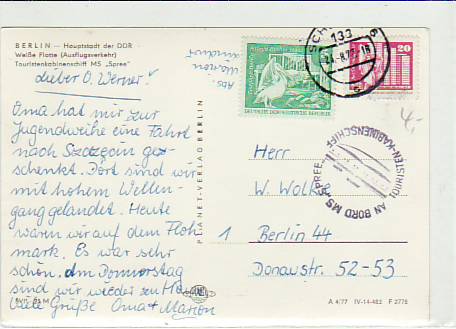 BERLIN – Hauptstadt der DDR –
Weiße Flotte (Ausflugsverkehr)
Touristenkabinenschiff MS „Spree"
Lieber O. Werner!
Oma hat mir zur
Jugendweihe eine Fahrt
nach Szczecin ge-
schenkt. Dort sind wir
mit hohem Wellen-
gang gelandet. Heute
waren wir auf dem Floh
mark. Es war sehr
schön. Am Donnerstag
sind wir wieder zu Hause
Viele Grüße Oma + Marion
PLANET-VERLAG BERLIN
Abs.
Marion
133
20
DEUTSCHE DEMOKRATISCHE REPUBLIK
4,-
TOURISTEN-KABINENSCHIFF
AN BORD MS SPREE
Herr
W. Wolkie
1 Berlin 44
Donaustr. 52-53
A 4/77 IV-14-483 F 2778